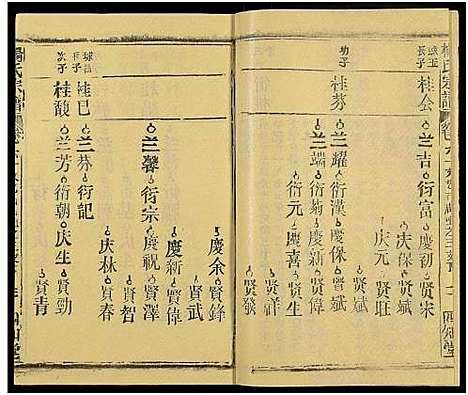 楊氏宗譜
四知堂
球玉
長子
桂会
兰吉
衍富
慶初
賢宋
庆保
賢斌
庆元
賢旺
次子
桂芬
兰耀
衍漢
慶保
賢斌
兰端
衍菊
慶新
賢偉
衍元
慶喜
賢生
賢祥
賢發
兰馨
衍宗
慶余
賢鋒
賢武
慶新
賢偉
慶祝
賢澤
賢智
庆林
賢春
球昌
長子
桂巳
兰芬
衍記
次子
桂馥
兰芳
衍朝
庆生
賢勁
賢青
楊氏宗譜